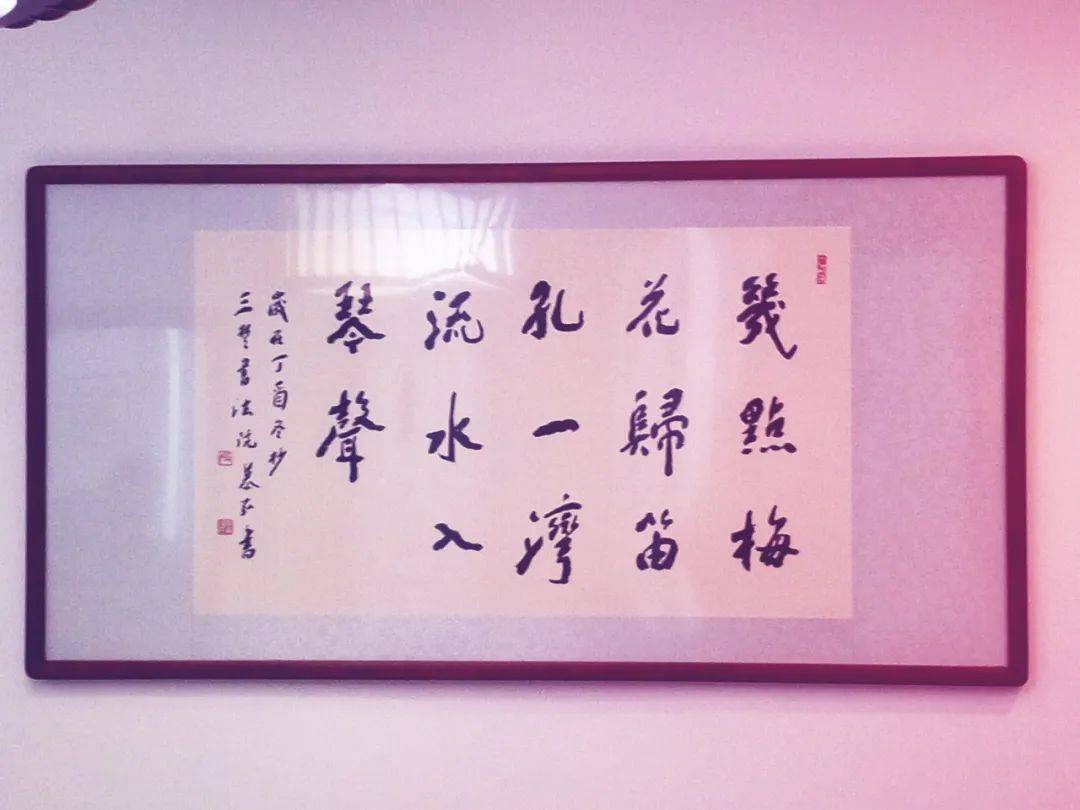 幾點梅
花歸笛
孔一灣
流水入
琴聲
歲在丁酉冬杪
三楚書法院 慕 書